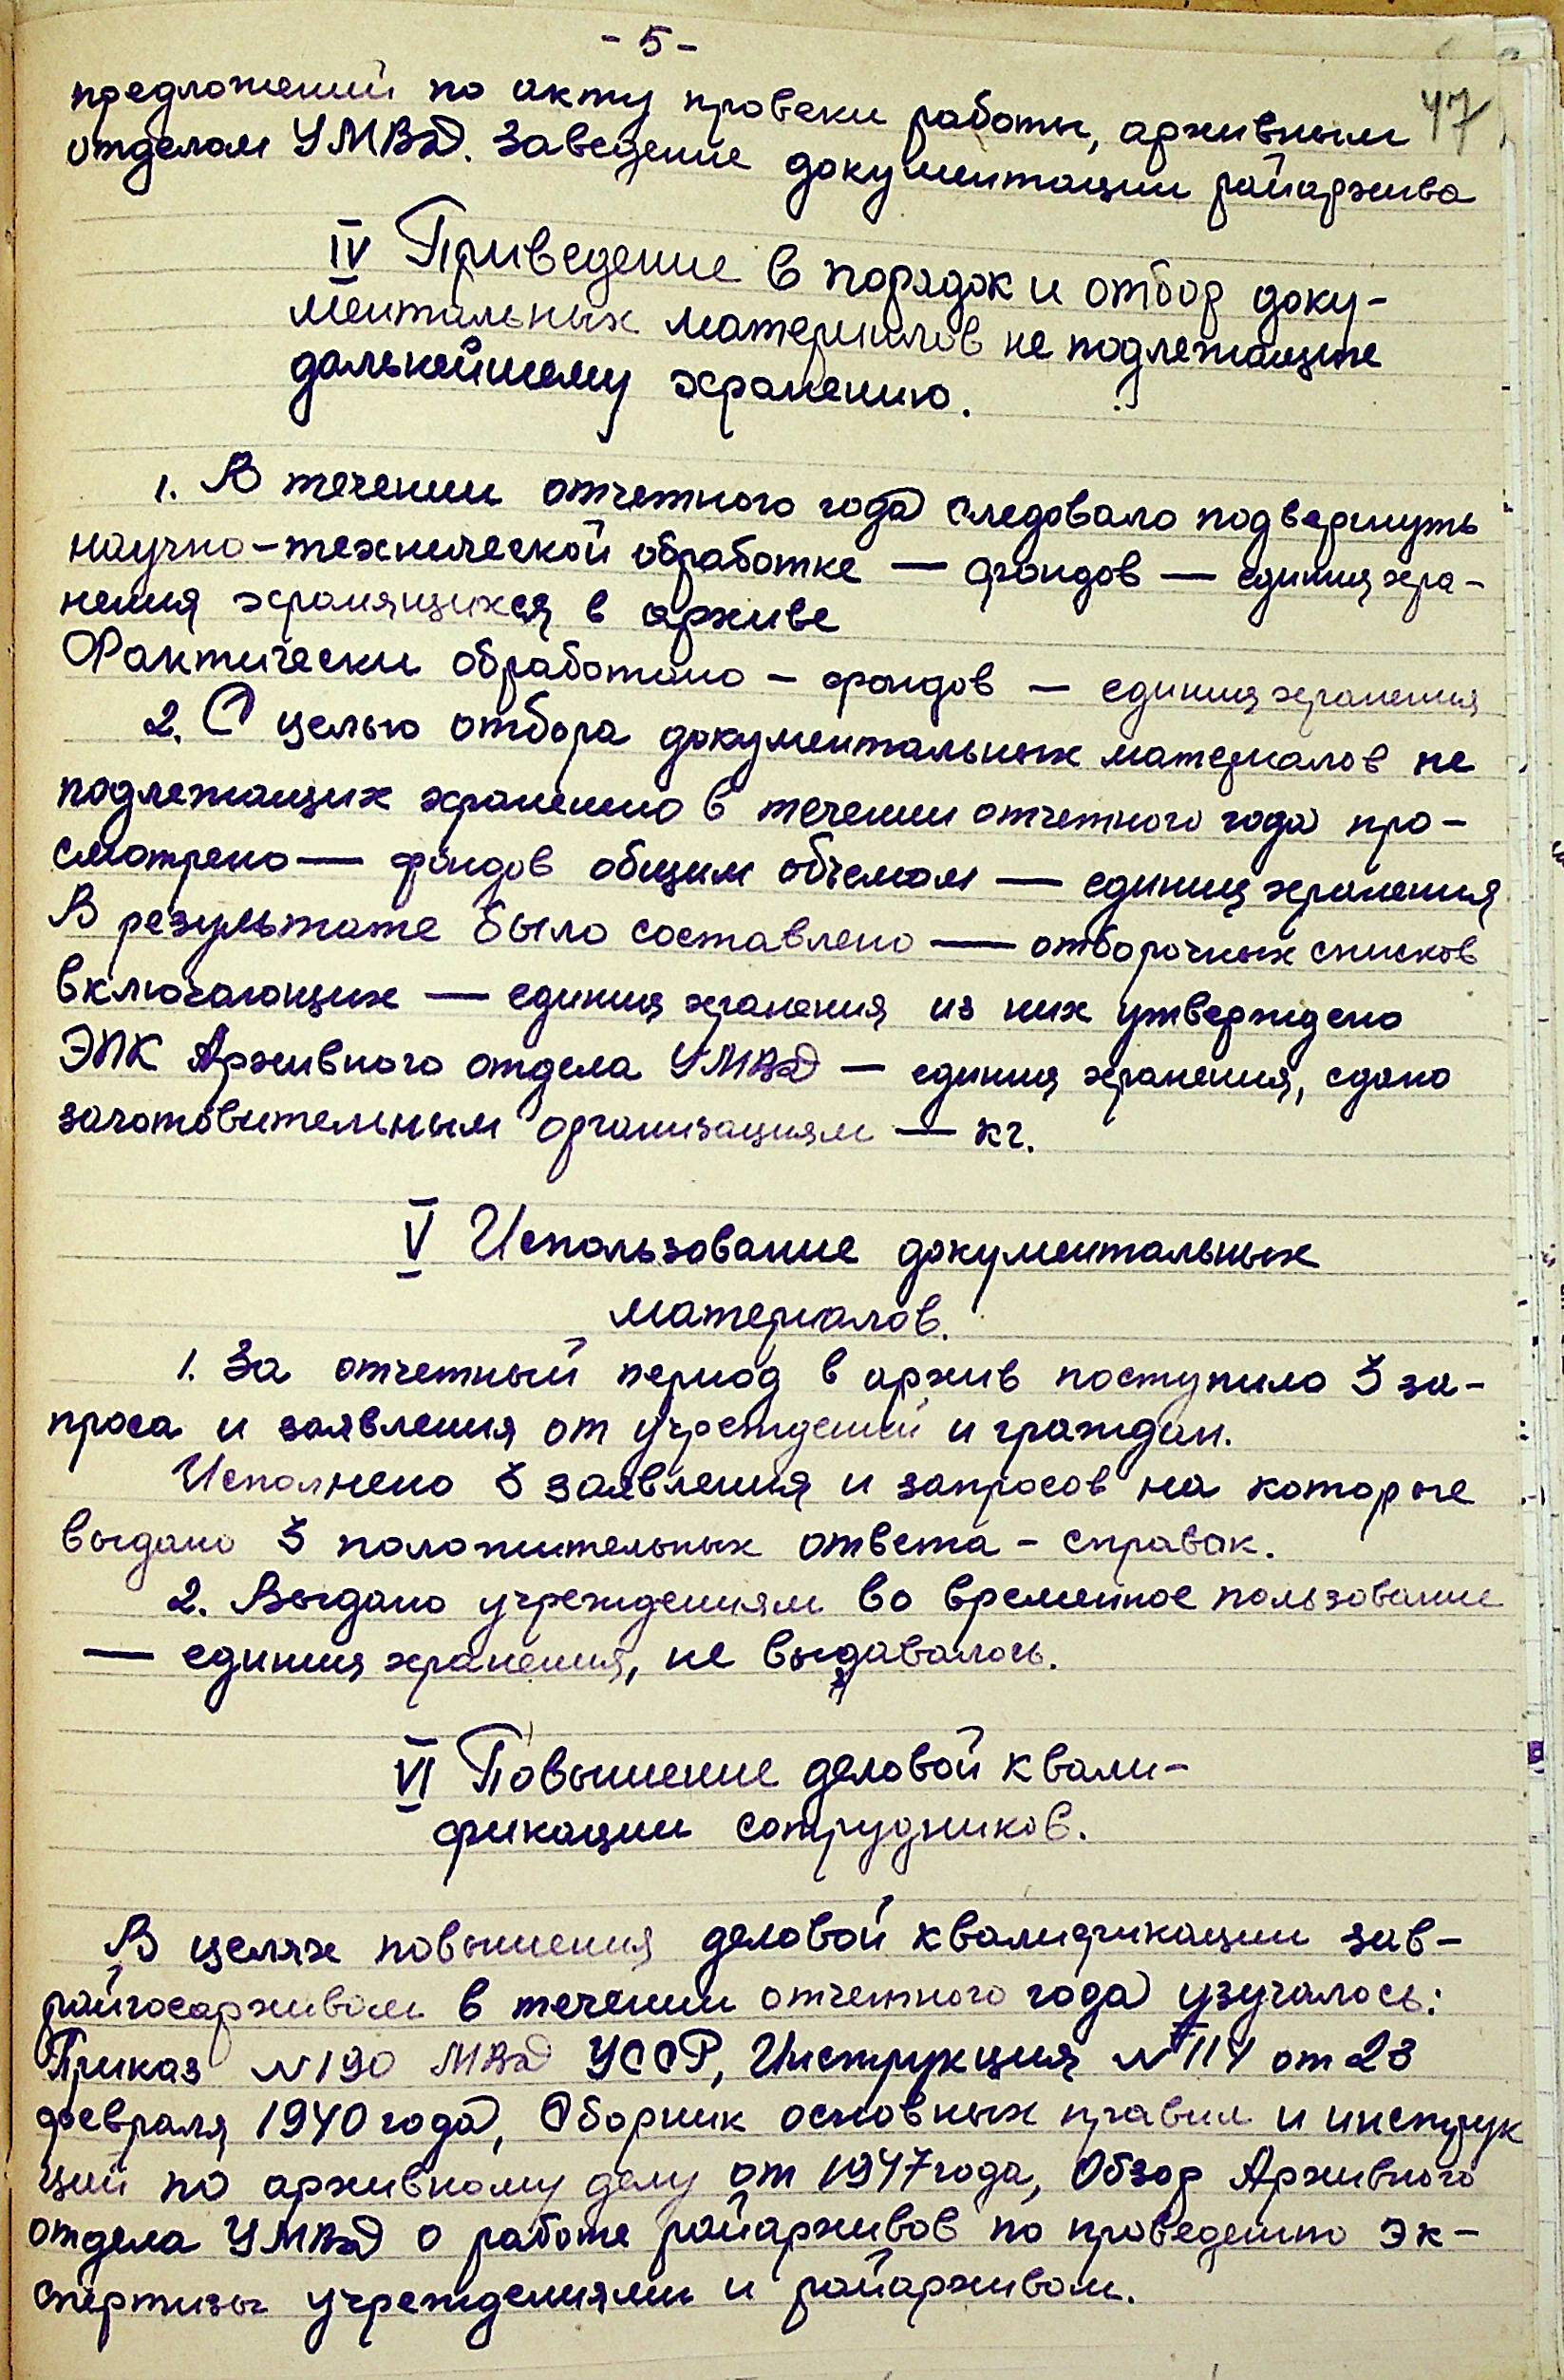 - 5 -
47
предложений по акту провеки работы, архивным
отделом УМВД. Заведение документации райархива
IV Приведение в порядок и отбор доку-
ментальных материалов не подлежащие
дальнейшему хранению.
1. В течении отчетного года следовало подвергнуть
научно-технической обработке — фондов — единиц хра-
нения хранящихся в архиве
Фактически обработано - фондов — единиц хранения
2. С целью отбора документальных материалов не
подлежащих хранению в течении отчетного года про-
смотрено — фондов общим объемом — единиц хранения
В результате было составлено — отборочных списков
включающих — единиц хранения из них утверждено
ЭПК Архивного отдела УМВД — единиц хранения, сдано
заготовительным организациям — кг.
V Использование документальных
материалов.
1. За отчетный период в архив поступило 3 за-
проса и заявления от учреждений и граждан.
Исполнено 3 заявления и запросов на которые
выдано 3 положительных ответа - справок.
2. Выдано учреждениям во временное пользование
— единиц хранения, не выдавалось.
VI Повышение деловой квали-
фикации сотрудников.
В целях повышения деловой квалификации зав-
райгосархивом в течении отчетного года узучалось:
Приказ N190 МВД УССР, Инструкция N 114 от 23
февраля 1940 года, Сборник основных правил и инструк
ций по архивному делу от 1947 года, Обзор Архивного
отдела УМВД о работе райархивов по проведению эк-
спертизы учреждениями и райархивом.